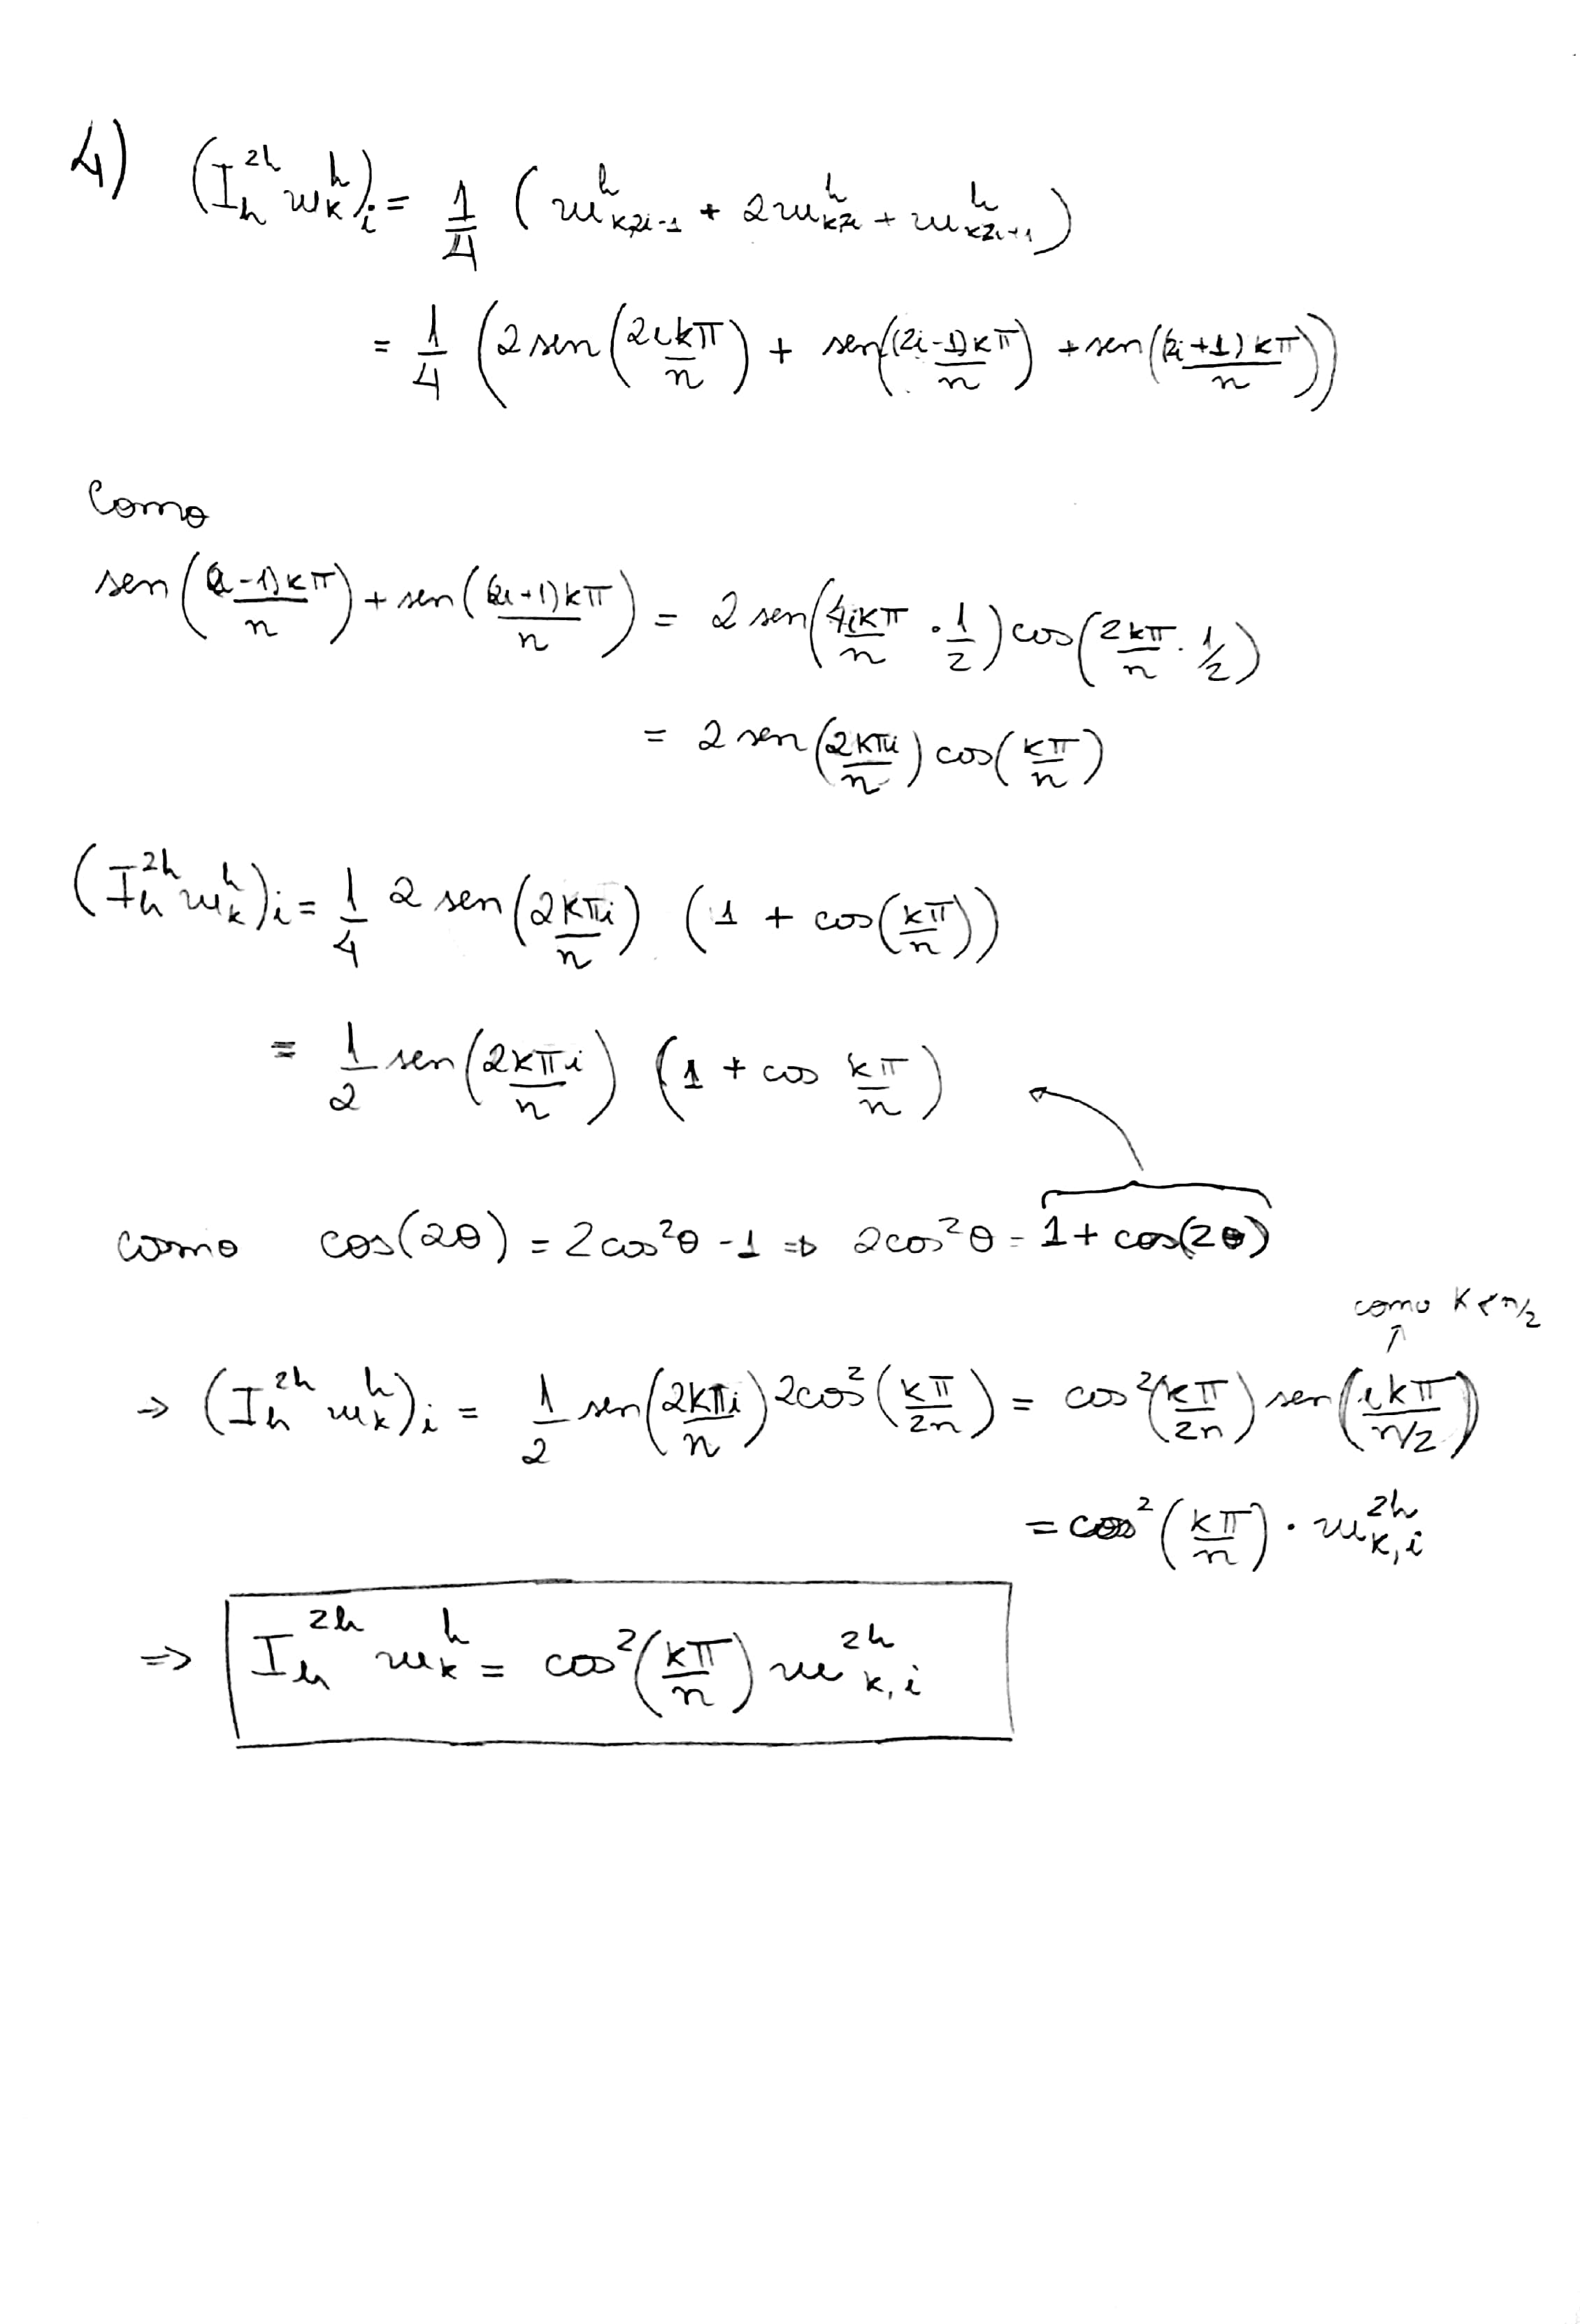 4) (I_h^{2h} w_k^h)_i = 1/4 (w^h_{k,2i-1} + 2w^h_{k,2i} + w^h_{k,2i+1})
= 1/4 (2 sen(2ikπ/n) + sen((2i-1)kπ/n) + sen((2i+1)kπ/n))
Como
sen((2i-1)kπ/n) + sen((2i+1)kπ/n) = 2 sen(4ikπ/n · 1/2) cos(2kπ/n · 1/2)
= 2 sen(2kπi/n) cos(kπ/n)
(I_h^{2h} w_k^h)_i = 1/4 2 sen(2kπi/n) (1 + cos(kπ/n))
= 1/2 sen(2kπi/n) (1 + cos kπ/n)
como cos(2θ) = 2cos²θ - 1 ⇒ 2cos²θ = 1 + cos(2θ)
como K < n/2
⇒ (I_h^{2h} w_k^h)_i = 1/2 sen(2kπi/n) 2cos²(kπ/2n) = cos²(kπ/2n) sen(ikπ/(n/2))
= cos²(kπ/n) · w^{2h}_{k,i}
⇒ I_h^{2h} w_k^h = cos²(kπ/n) w^{2h}_{k,i}